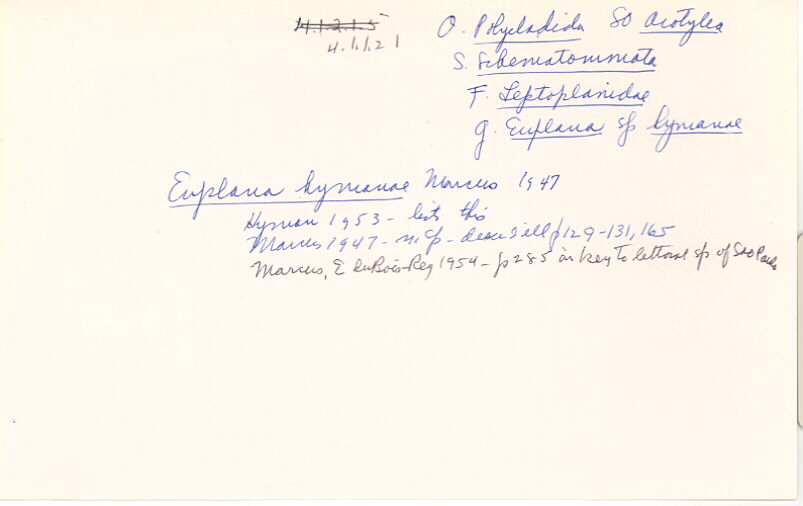 4.1.2.1.5
4.1.1.2 1
O. Polycladida SO Acotylea
S. Schematommata
F. Leptoplanidae
G. Euplana sp hymanae
Euplana hymanae Marcus 1947
Hyman 1953 - lists this
Marcus 1947 - n. sp - desc & ill p 129-131, 165
Marcus, E duBois-Rey 1954 - p 285 in key to littoral sp of Sao Paulo